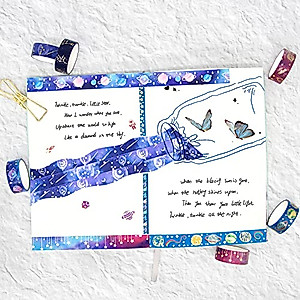 Twinkle, twinkle, little star,
How I wonder what you are.
Up above the world so high
Like a diamond in the sky.
When the blazing sun is gone,
When the nothing shines upon,
Then you show your little light
Twinkle, twinkle all the night.